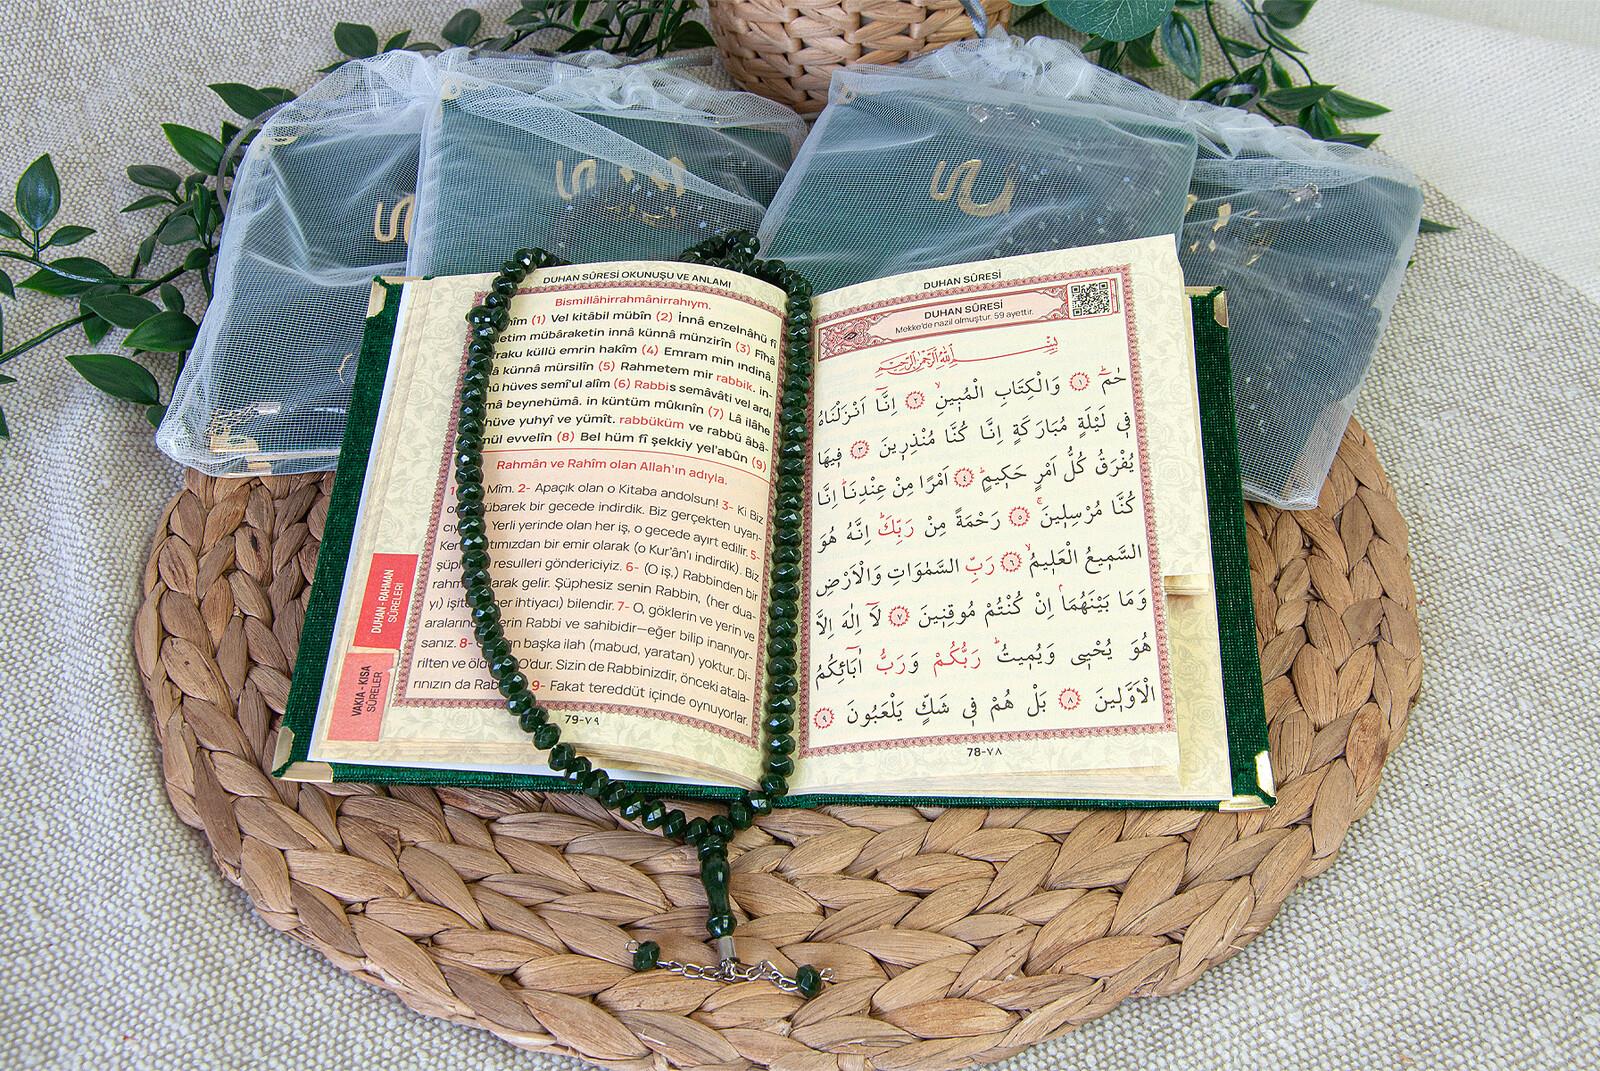 DUHAN SÛRESİ OKUNUŞU VE ANLAMI
Bismillâhirrahmânirrahıym.
(1) Vel kitâbil mübîn (2) İnnâ enzelnâhü fî
mübâraketin innâ künnâ münzirîn (3) Fîhâ
küllü emrin hakîm (4) Emram min ındinâ.
künnâ mürsilîn (5) Rahmetem mir rabbik. in-
hüves semî'ul alîm (6) Rabbis semâvâti vel ardı
beynehümâ. in küntüm mûkınîn (7) Lâ ilâhe
hüve yuhyî ve yümît. rabbüküm ve rabbü âbâ-
evvelîn (8) Bel hüm fî şekkiy yel'abûn (9)
Rahmân ve Rahîm olan Allah'ın adıyla.
Mîm. 2- Apaçık olan o Kitaba andolsun! 3- Ki Biz
bir gecede indirdik. Biz gerçekten uyarı-
Yerli yerinde olan her iş, o gecede ayırt edilir. 5-
bir emir olarak (o Kur'ân'ı indirdik). Biz
resulleri göndericiyiz. 6- (O iş,) Rabbinden bir
gelir. Şüphesiz senin Rabbin, (her dua-
her ihtiyacı) bilendir. 7- O, göklerin ve yerin ve
Rabbi ve sahibidir—eğer bilip inanıyor-
sanız. 8- başka ilah (mabud, yaratan) yoktur. Di-
rilten ve O'dur. Sizin de Rabbinizdir, önceki atala-
rınızın da 9- Fakat tereddüt içinde oynuyorlar.
79-٧٩
DUHAN - RAHMAN
SÛRELERİ
VAKIA - KISA
SÛRELER
DUHAN SÛRESİ
DUHAN SÛRESİ
Mekke'de nazil olmuştur. 59 ayettir.
بِسْمِ اللّٰهِ الرَّحْمٰنِ الرَّحِيمِ
حٰمٓ ١ وَالْكِتَابِ الْمُبِينِ ٢ اِنَّٓا اَنْزَلْنَاهُ
فِى لَيْلَةٍ مُبَارَكَةٍ اِنَّا كُنَّا مُنْذِرِينَ ٣ فِيهَا
يُفْرَقُ كُلُّ اَمْرٍ حَكِيمٍ ٤ اَمْرًا مِنْ عِنْدِنَا اِنَّا
كُنَّا مُرْسِلِينَ ٥ رَحْمَةً مِنْ رَبِّكَ اِنَّهُ هُوَ
السَّمِيعُ الْعَلِيمُ ٦ رَبِّ السَّمٰوَاتِ وَالْاَرْضِ
وَمَا بَيْنَهُمَا اِنْ كُنْتُمْ مُوقِنِينَ ٧ لَٓا اِلٰهَ اِلَّا
هُوَ يُحْيِى وَيُمِيتُ رَبُّكُمْ وَرَبُّ اٰبَٓائِكُمُ
الْاَوَّلِينَ ٨ بَلْ هُمْ فِى شَكٍّ يَلْعَبُونَ ٩
78-٧٨